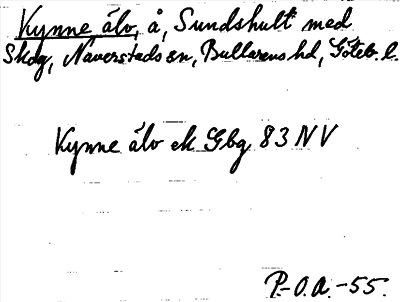 Kynne älv, å, Sundshult med
Skog, Naverstads sn, Bullarens hd, Göteb. l.
Kynne älv ek Gbg 83 NV
P.-O.A. -55.